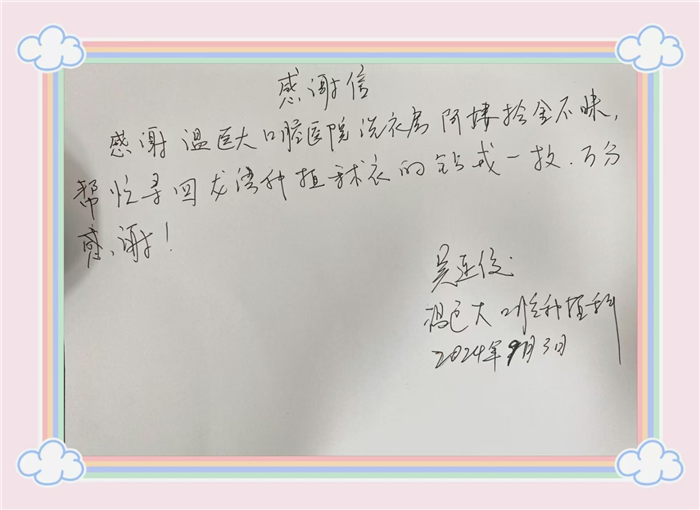 感谢信
感谢温医大口腔医院洗衣房阿姨拾金不昧,
帮忙寻回龙湾种植手术衣的钻戒一枚.万分
感谢!
吴连俊
温医大口腔种植科
2024年9月3日